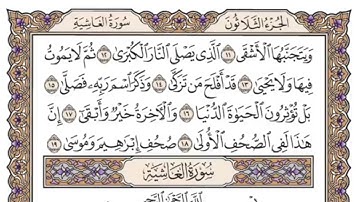 سُورَةُ الغَاشِيَةِ الجُزْءُ الثَّلَاثُونَ
وَيَتَجَنَّبُهَا ٱلْأَشْقَى ١١ ٱلَّذِي يَصْلَى ٱلنَّارَ ٱلْكُبْرَىٰ ١٢ ثُمَّ لَا يَمُوتُ
فِيهَا وَلَا يَحْيَىٰ ١٣ قَدْ أَفْلَحَ مَن تَزَكَّىٰ ١٤ وَذَكَرَ ٱسْمَ رَبِّهِۦ فَصَلَّىٰ ١٥
بَلْ تُؤْثِرُونَ ٱلْحَيَوٰةَ ٱلدُّنْيَا ١٦ وَٱلْآخِرَةُ خَيْرٌ وَأَبْقَىٰٓ ١٧ إِنَّ
هَٰذَا لَفِي ٱلصُّحُفِ ٱلْأُولَىٰ ١٨ صُحُفِ إِبْرَٰهِيمَ وَمُوسَىٰ ١٩
سُورَةُ الغَاشِيَةِ